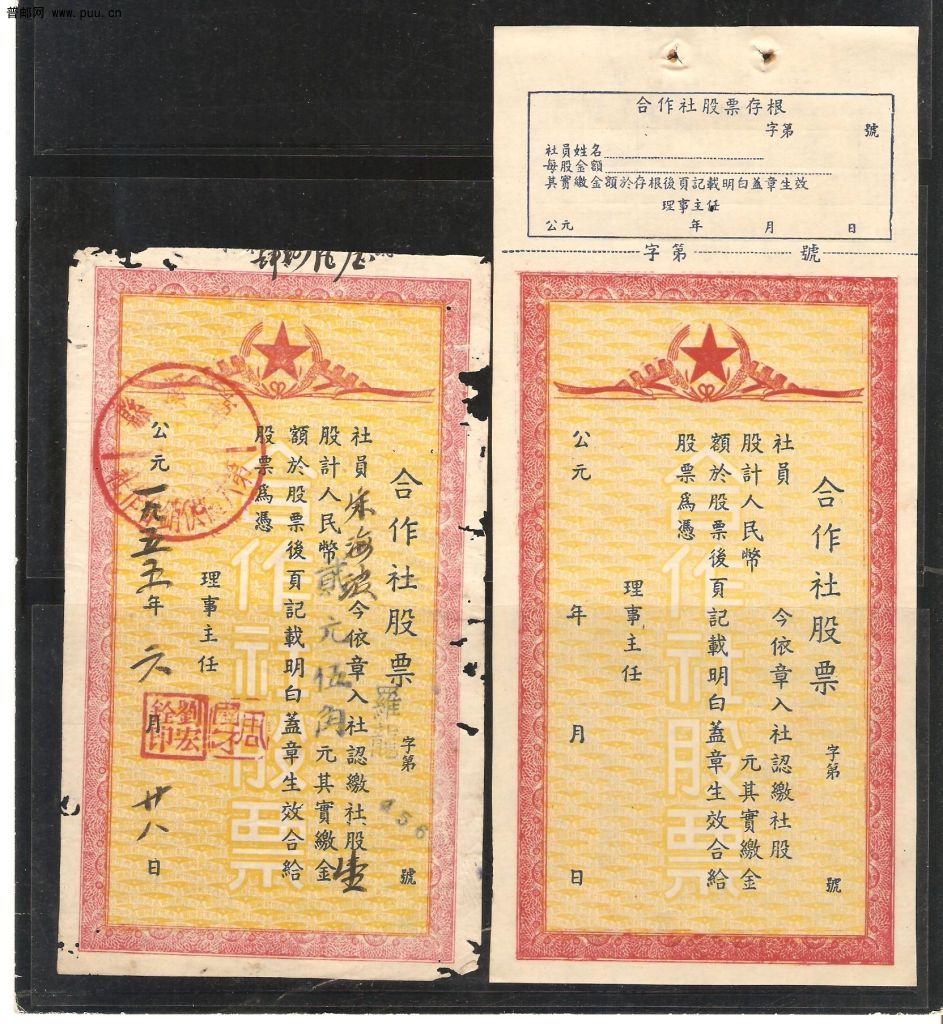 普邮网 www.puu.cn
合作社股票存根
字第 號
社員姓名
每股金額
其實繳金額於存根後頁記載明白蓋章生效
理事主任
公元 年 月 日
字第 號
合作社股票 字第 號
社員 今依章入社認繳社股
股計人民幣 元其實繳金
額於股票後頁記載明白蓋章生效合給
股票爲憑
理事主任
公元 年 月 日
合作社股票
合作社股票 字第 號
羅
956
社員朱海 今依章入社認繳社股壹
股計人民幣貳元伍角元其實繳金
額於股票後頁記載明白蓋章生效合給
股票爲憑
理事主任
周
劉宏
銓印
公元一九五五年六月廿八日
縣
供銷合作社
合作社股票